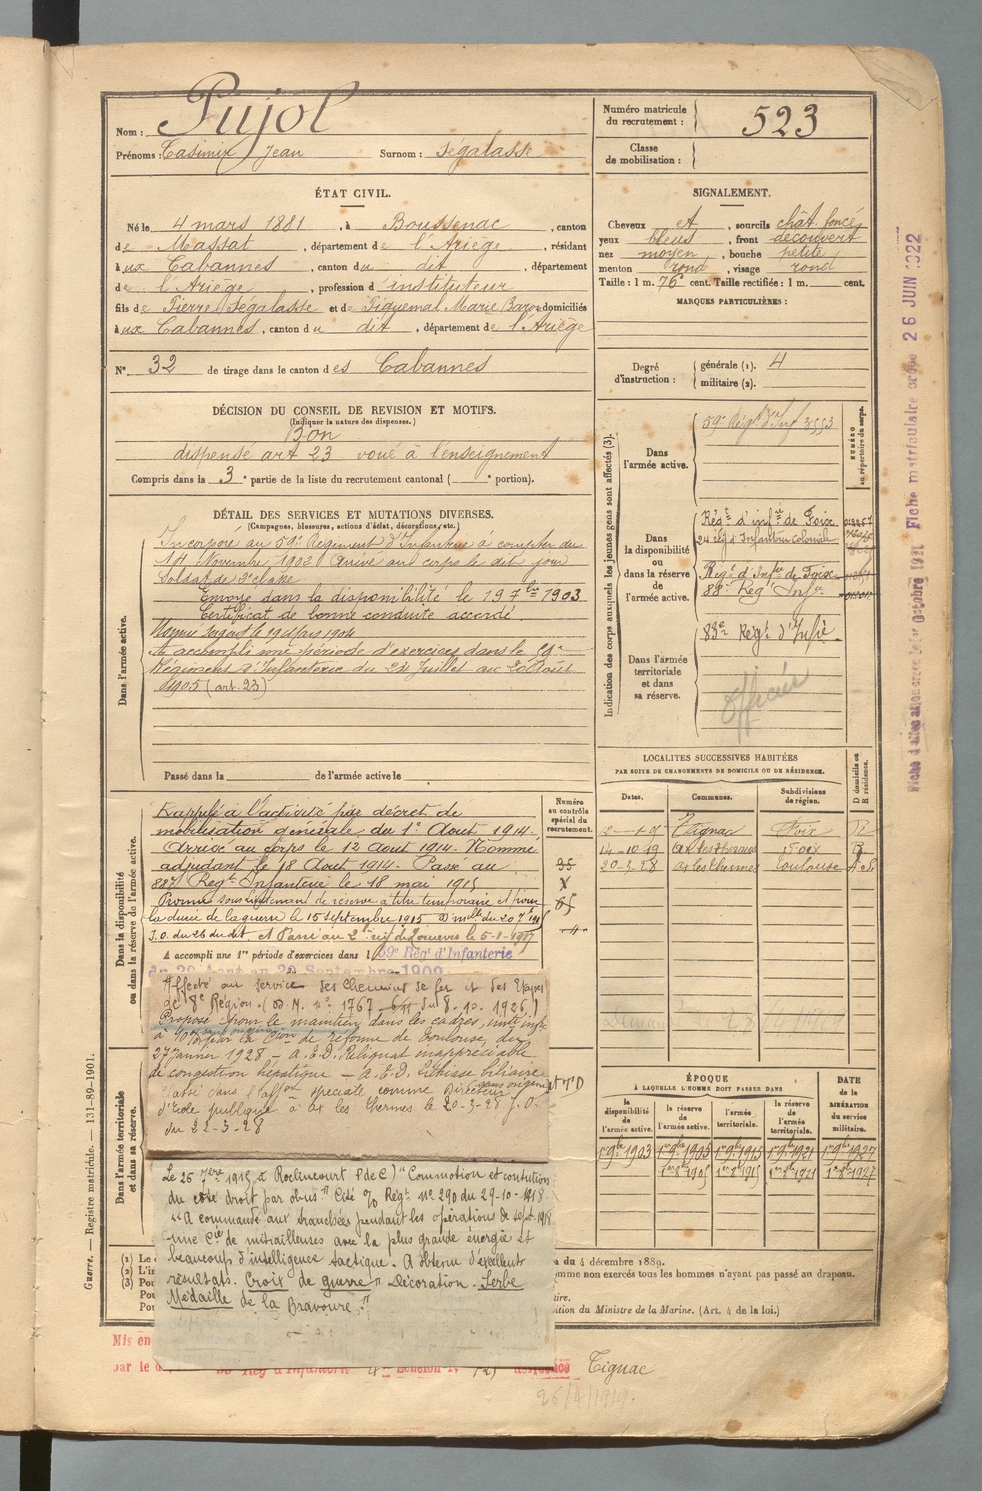 Nom : Pujol
Prénoms : Casimir Jean Surnom : Ségalasse
Numéro matricule du recrutement : 523
Classe de mobilisation :
ÉTAT CIVIL.
Né le 4 mars 1881, à Boussenac, canton
de Massat, département de l'Ariège, résidant
à ux Cabannes, canton du dit, département
de l'Ariège, profession d'instituteur
fils de Pierre Ségalasse et de Piquemal Marie domiciliés
à ux Cabannes, canton du dit, département de l'Ariège
N° 32 de tirage dans le canton des Cabannes
SIGNALEMENT.
Cheveux et, sourcils chât foncé
yeux bleus, front découvert
nez moyen, bouche petite
menton rond, visage rond
Taille : 1 m. 76 cent. Taille rectifiée : 1 m. cent.
MARQUES PARTICULIÈRES :
Degré d'instruction : générale (1). 4
militaire (2).
DÉCISION DU CONSEIL DE REVISION ET MOTIFS.
(Indiquer la nature des dispenses.)
Bon
dispensé art 23 voué à l'enseignement
Compris dans la 3e partie de la liste du recrutement cantonal ( e portion).
DÉTAIL DES SERVICES ET MUTATIONS DIVERSES.
(Campagnes, blessures, actions d'éclat, décorations, etc.)
Dans l'armée active.
Incorporé au 59e Régiment d'Infanterie à compter du
14 Novembre 1902 Arrivé au corps le dit jour
Soldat de 2e classe
Envoyé dans la disponibilité le 19 7bre 1903
Certificat de bonne conduite accordé.
le 19 Mars 1904
A accompli une période d'exercices dans le 59e
Régiment d'Infanterie du 24 Juillet au 20 Août
1905 (art. 23)
Passé dans la de l'armée active le
Indication des corps auxquels les jeunes gens sont affectés (3).
NUMÉRO au répertoire du corps.
Dans l'armée active.
59e Régt d'Inf 3553
Dans la disponibilité ou dans la réserve de l'armée active.
Régt d'infie de Foix
24 Rég d'Infanterie Coloniale
Régt d'Infie de Foix
88e Régt Infie
Dans l'armée territoriale et dans sa réserve.
83e Régt d'Infie
officier
LOCALITÉS SUCCESSIVES HABITÉES
PAR SUITE DE CHANGEMENTS DE DOMICILE OU DE RÉSIDENCE.
Dates. Communes. Subdivisions de région. D domicile ou R résidence.
Tignac Foix R
14-10-19 Ax les Thermes Foix
20-3-28 Ax les Thermes Toulouse
Dans la disponibilité ou dans la réserve de l'armée active.
Numéro au contrôle spécial du recrutement.
Rappelé à l'activité par décret de
mobilisation générale du 1er Aout 1914.
Arrivé au corps le 12 Aout 1914. Nommé
adjudant le 18 Aout 1914. Passé au
88e Régt Infanterie le 18 mai 1915
Promu sous lieutenant de réserve à titre temporaire et pour
la durée de la guerre le 15 septembre 1915
J.O. du 26 du dit et Passé au 2e rég de Zouaves le 5-8-1917
A accompli une 1re période d'exercices dans l 59e Régt d'Infanterie
du 29 Août au 20 Septembre 1909
Affecté au service des Chemins de fer et des Etapes
de 8e Région. (D.M. no 1767 du 8.10.1926.)
Proposé pour le maintien dans les cadres,
de réforme de Toulouse, du
27 janvier 1928 - A.E.D. Reliquat inappréciable
de congestion hépatique - A.E.D. Lithiase biliaire
Classé dans l'affon spéciale comme Directeur
d'école publique à Ax les Thermes le 20-3-28 J.O.
du 22-3-28
Dans l'armée territoriale et dans sa réserve.
Le 25 7bre 1915 à Roclincourt (P de C) "Commotion et contusion
du coté droit par obus" Cité o/o Régt no 290 du 29-10-1918
"A commandé aux tranchées pendant les opérations de sept. 1918
une Cie de mitrailleuses avec la plus grande énergie et
beaucoup d'intelligence tactique. A obtenu d'excellents
résultats. Croix de guerre" Décoration. Serbe
Médaille de la Bravoure."
ÉPOQUE
À LAQUELLE L'HOMME DOIT PASSER DANS
la disponibilité de l'armée active. la réserve de l'armée active. l'armée territoriale. la réserve de l'armée territoriale.
DATE de la LIBÉRATION du service militaire.
1er 9bre 1903 1er 9bre 1905 1er 9bre 1915 1er 9bre 1921 1er 9bre 1927
1er 8bre 1905 1er 8bre 1915 1er 8bre 1921 1er 8bre 1927
(1) Le
(2) L'in
(3) Pou
Pou
Po
du 4 décembre 1889.
omme non exercés tous les hommes n'ayant pas passé au drapeau.
ition du Ministre de la Marine. (Art. 4 de la loi.)
Mis en
par le d Rég d'Infanterie Echelon Résidence Tignac
26/4/1919.
Guerre. — Registre matricule. — 131-89-1901.
Fiche matriculaire créée 26 JUIN 1922